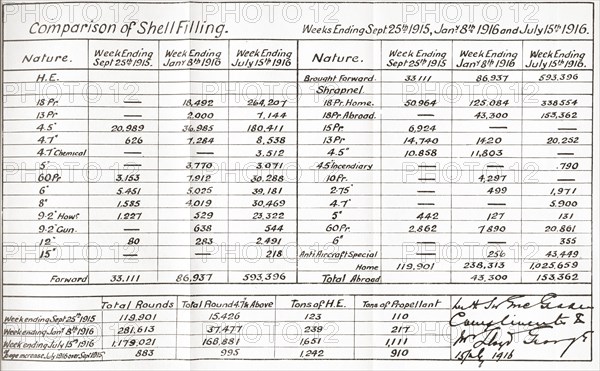 Comparison of Shell Filling. Weeks Ending Sept. 25th 1915, Jany 8th 1916 and July 15th 1916.
Nature. Week Ending Sept 25th 1915. Week Ending Jany 8th 1916 Week Ending July 15th 1916 Nature. Week Ending Sept 25th 1915 Week Ending Jany 8th 1916 Week Ending July 15th 1916
H.E. Brought Forward 33,111 86,937 593,396
Shrapnel
18 Pr — 18,492 264,207 18 Pr. Home. 50,964 125,084 338,554
13 Pr — 2,000 7,144 18 Pr. Abroad. — 43,300 153,362
4.5" 20,989 36,985 180,411 15 Pr 6,924 — —
4.7" 626 7,284 8,538 13 Pr 14,740 1420 20,252
4.7" Chemical — — 3,512 4.5" 10,858 11,803 —
5" — 3,770 3,071 4.5" Incendiary — — 790
60 Pr 3,153 7,912 30,288 10 Pr. — 4,297 —
6" 5,451 5,025 39,181 2.75" — 499 1,971
8" 1,585 4,019 30,469 4.7" — — 5,900
9.2" Howr 1,227 529 23,322 5" 442 127 131
9.2" Gun — 638 544 60 Pr 2,862 7,890 20,861
12" 80 283 2,491 6" — — 355
15" — — 218 Anti Aircraft Special — 256 43,449
Home 119,901 238,313 1,025,659
Forward 33,111 86,937 593,396 Total Abroad 43,300 153,362
Total Rounds Total Round 4.7" & Above Tons of H.E. Tons of Propellant
Week ending Sept 25th 1915 119,901 15,426 123 110
Week ending Jany 8th 1916 281,613 37,477 239 217
Week ending July 15th 1916 1,179,021 168,881 1,651 1,111
%age increase July 1916 over Sept 1915 883 995 1,242 910
Compliments to
Mr Lloyd George
15 July 1916